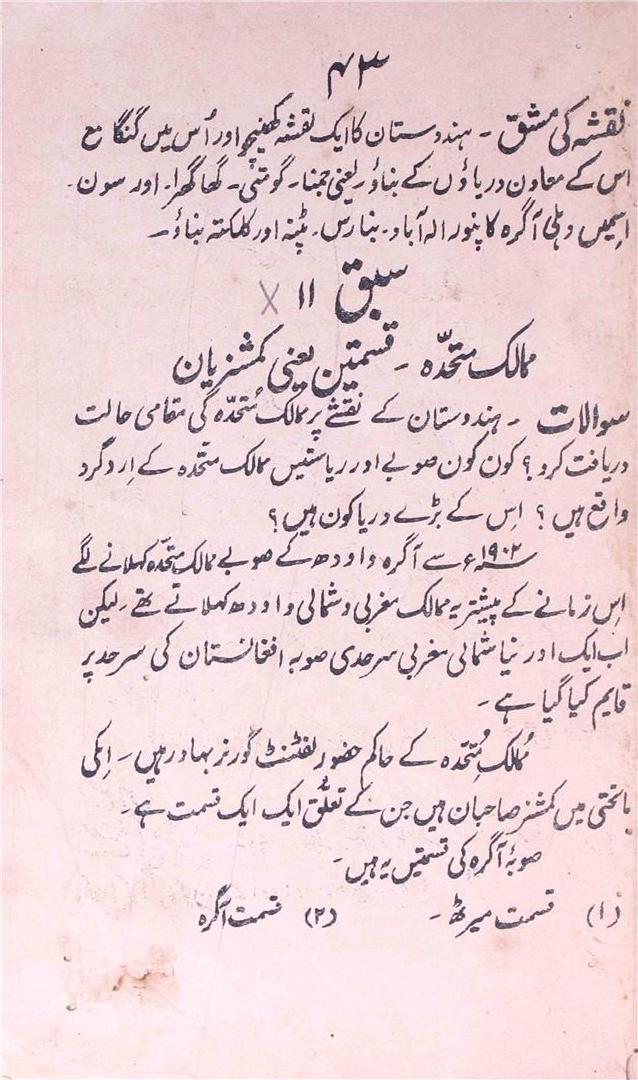 ۴۳
نقشہ کی مشق ۔ ہندوستان کا ایک نقشہ کھینچو اور اُس میں گنگا مع
اس کے معاون دریاؤں کے بناؤ۔ یعنی جمنا۔ گومتی۔ گھاگھرا۔ اور سون۔
اسمیں دہلی آگرہ کانپور الہ آباد۔ بنارس۔ پٹنہ اور کلکتہ بناؤ۔
سبق ۱۱ X
ممالک متحدّہ ۔ قسمتین یعنی کمشنریان
سوالات ۔ ہندوستان کے نقشے پر ممالک مُتحدّہ کی مقامی حالت
دریافت کرو؟ کون کون صوبے اور ریاستیں ممالک متحدہ کے اِردگرد
واقع ہیں؟ اِس کے بڑے دریا کون ہیں؟
۱۹۰۲؁ء سے آگرہ و اودھ کے صوبے ممالک متحدّہ کہلانے لگے
اِس زمانے کے پیشتر یہ ممالک مغربی و شمالی و اودھ کہلاتے تھے۔ لیکن
اب ایک اور نیا شمالی مغربی سرحدی صوبہ افغانستان کی سرحد پر
قایم کیا گیا ہے۔
مُمالکِ مُتحّدہ کے حاکم حضور لفٹنٹ گورنر بہادر ہیں۔ اِنکی
ماتحتی میں کمشنر صاحبان ہیں جن کے تعلُّق ایک ایک قسمت ہے۔
صوبۂ آگرہ کی قسمتیں یہ ہیں۔
(۱) قسمت میرٹھ۔ (۲) قسمت آگرہ